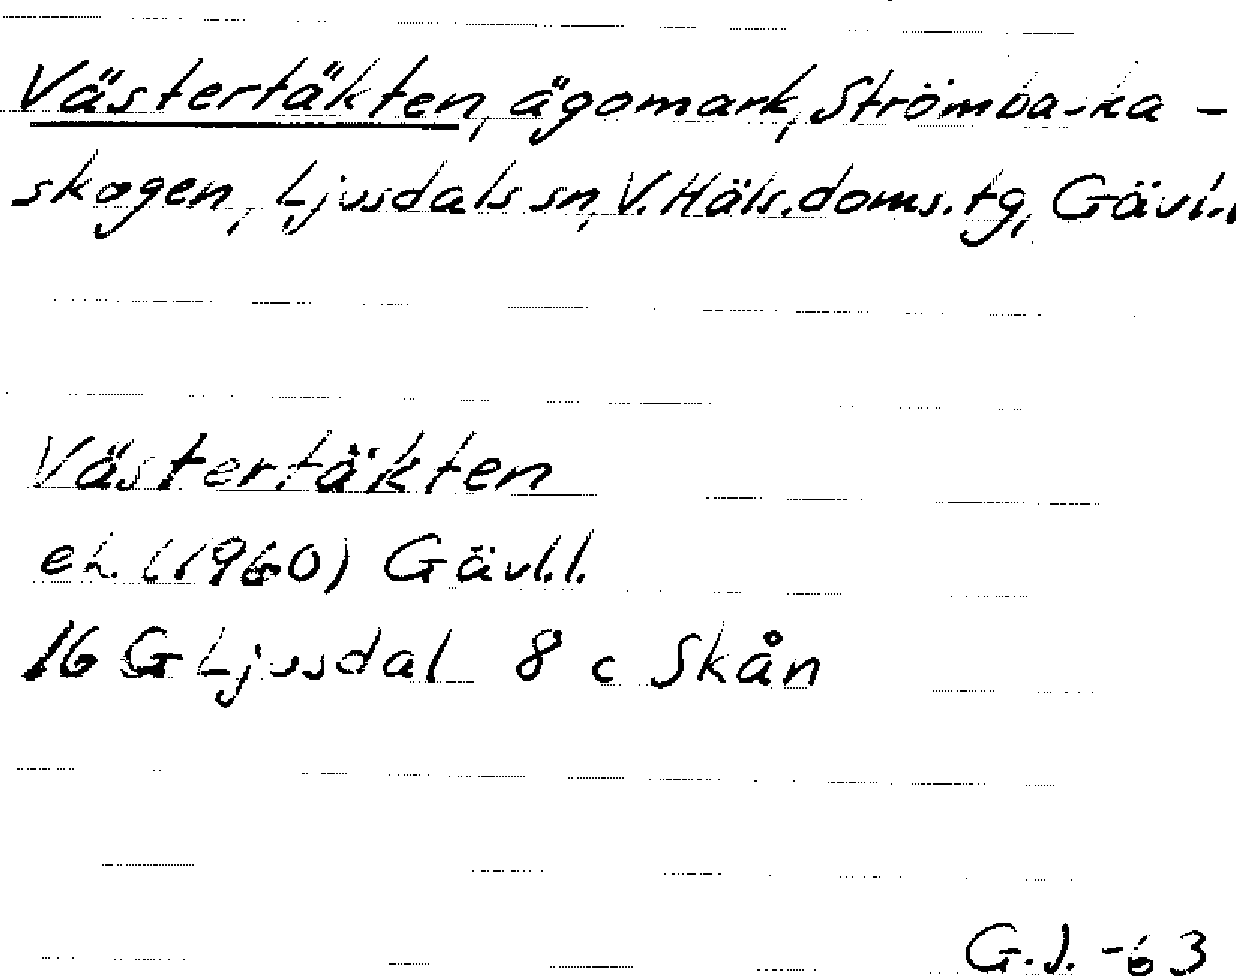 Västertäkten, ägomark, Strömbacka-
skogen, Ljusdals sn, V. Häls. doms. tg, Gävl.l
Västertäkten
ek. (1960) Gävl.l.
16 G Ljusdal 8 c Skån
G.J. -63